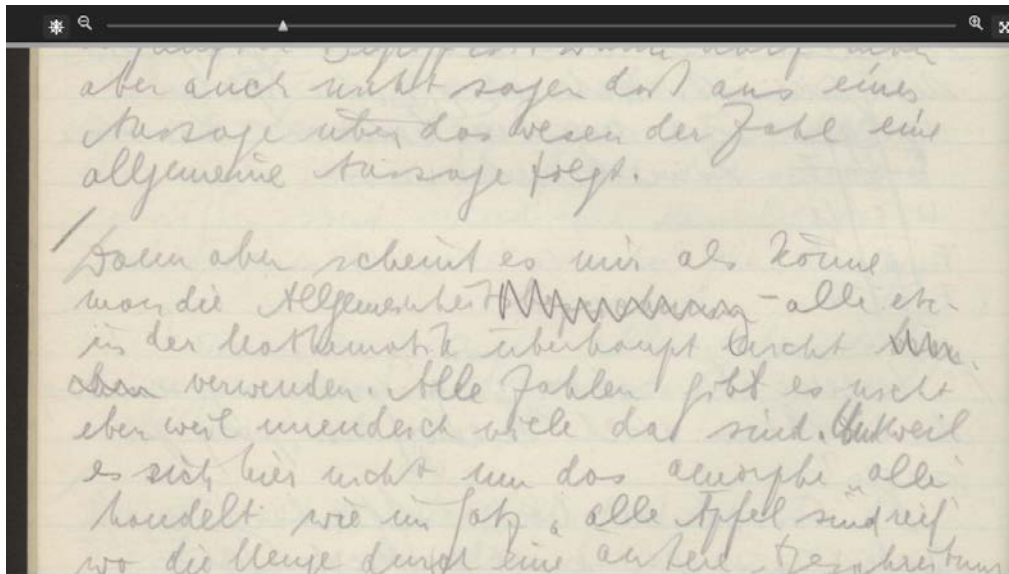 aber auch nicht sagen daß aus einer
Aussage über das Wesen der Zahl eine
allgemeine Aussage folgt.
/ Dann aber scheint es mir als könne
man die Allgemeinheit – alle etc.
in der Mathematik überhaupt nicht
verwenden. Alle Zahlen gibt es nicht
eben weil unendlich viele da sind. Und weil
es sich hier nicht um das amorphe „alle
handelt wie im Satz „alle Äpfel sind reif
wo die Menge durch eine